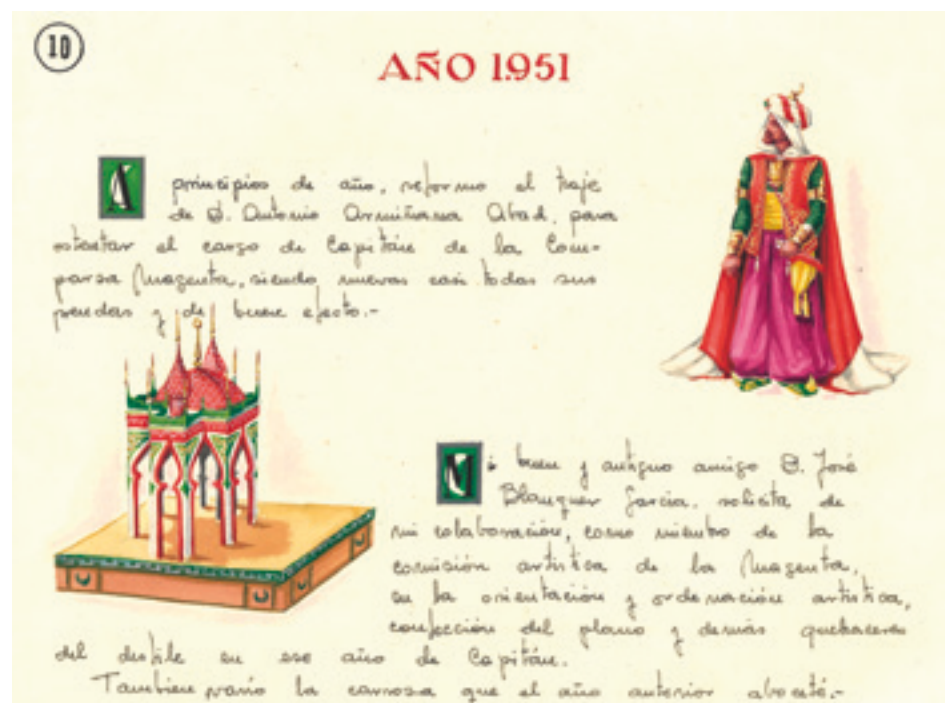 10
AÑO 1.951
A principios de año, reformo el traje
de D. Antonio Armiñana Abad, para
ostentar el cargo de Capitán de la Com-
parsa Magenta, siendo nuevas casi todas sus
prendas y de buen efecto.-
Mi buen y antiguo amigo D. José
Blanquer García, solicita de
mi colaboración, como miembro de la
comisión artística de la Magenta,
en la orientación y ordenación artística,
confección del plano y demás quehaceres
del desfile en ese año de Capitán.
Tambien varío la carroza que el año anterior aboceté.-